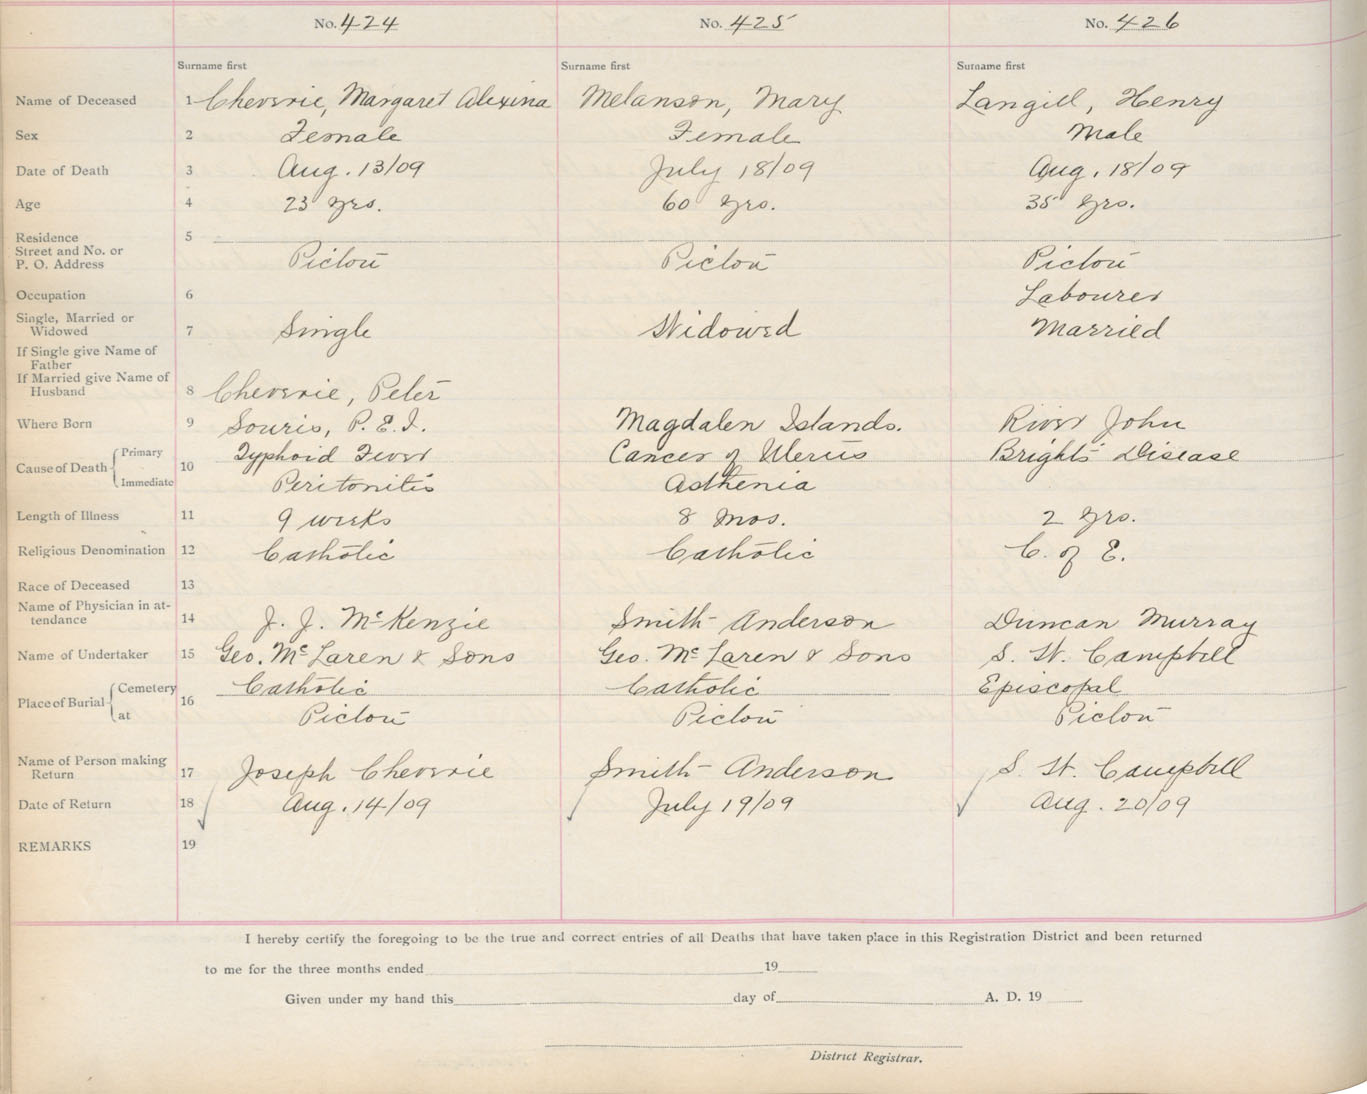 No. 424 No. 425 No. 426
Surname first Surname first Surname first
Name of Deceased 1 Cheverie, Margaret Alexina Melanson, Mary Langill, Henry
Sex 2 Female Female Male
Date of Death 3 Aug. 13/09 July 18/09 Aug. 18/09
Age 4 23 yrs. 60 yrs. 35 yrs.
Residence 5
Street and No. or
P. O. Address Pictou Pictou Pictou
Occupation 6 Labourer
Single, Married or
Widowed 7 Single Widowed Married
If Single give Name of
Father
If Married give Name of
Husband 8 Cheverie, Peter
Where Born 9 Souris, P.E.I. Magdalen Islands. River John
Cause of Death 10 Primary Typhoid Fever Cancer of Uterus Bright's Disease
Immediate Peritonitis Asthenia
Length of Illness 11 9 weeks 8 mos. 2 yrs.
Religious Denomination 12 Catholic Catholic C. of E.
Race of Deceased 13
Name of Physician in at-
tendance 14 J. J. McKenzie Smith Anderson Duncan Murray
Name of Undertaker 15 Geo. McLaren & Sons Geo. McLaren & Sons S. W. Campbell
Place of Burial 16 Cemetery Catholic Catholic Episcopal
at Pictou Pictou Pictou
Name of Person making
Return 17 Joseph Cheverie Smith Anderson S. W. Campbell
Date of Return 18 Aug. 14/09 July 19/09 Aug. 20/09
REMARKS 19
I hereby certify the foregoing to be the true and correct entries of all Deaths that have taken place in this Registration District and been returned
to me for the three months ended 19
Given under my hand this day of A. D. 19
District Registrar.